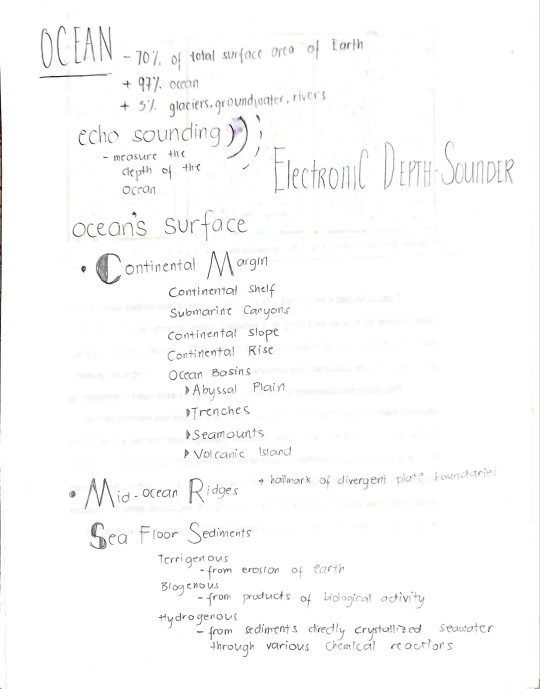 OCEAN - 70% of total surface area of Earth
+ 97% ocean
+ 3% glaciers, groundwater, rivers
echo sounding
- measure the
depth of the
ocean
ELECTRONIC DEPTH-SOUNDER
ocean's surface
• Continental Margin
Continental Shelf
Submarine Canyons
Continental Slope
Continental Rise
Ocean Basins
Abyssal Plain
Trenches
Seamounts
Volcanic Island
• Mid-ocean Ridges + hallmark of divergent plate boundaries
Sea Floor Sediments
Terrigenous
- from erosion of earth
Biogenous
- from products of biological activity
Hydrogenous
- from sediments directly crystallized seawater
through various chemical reactions